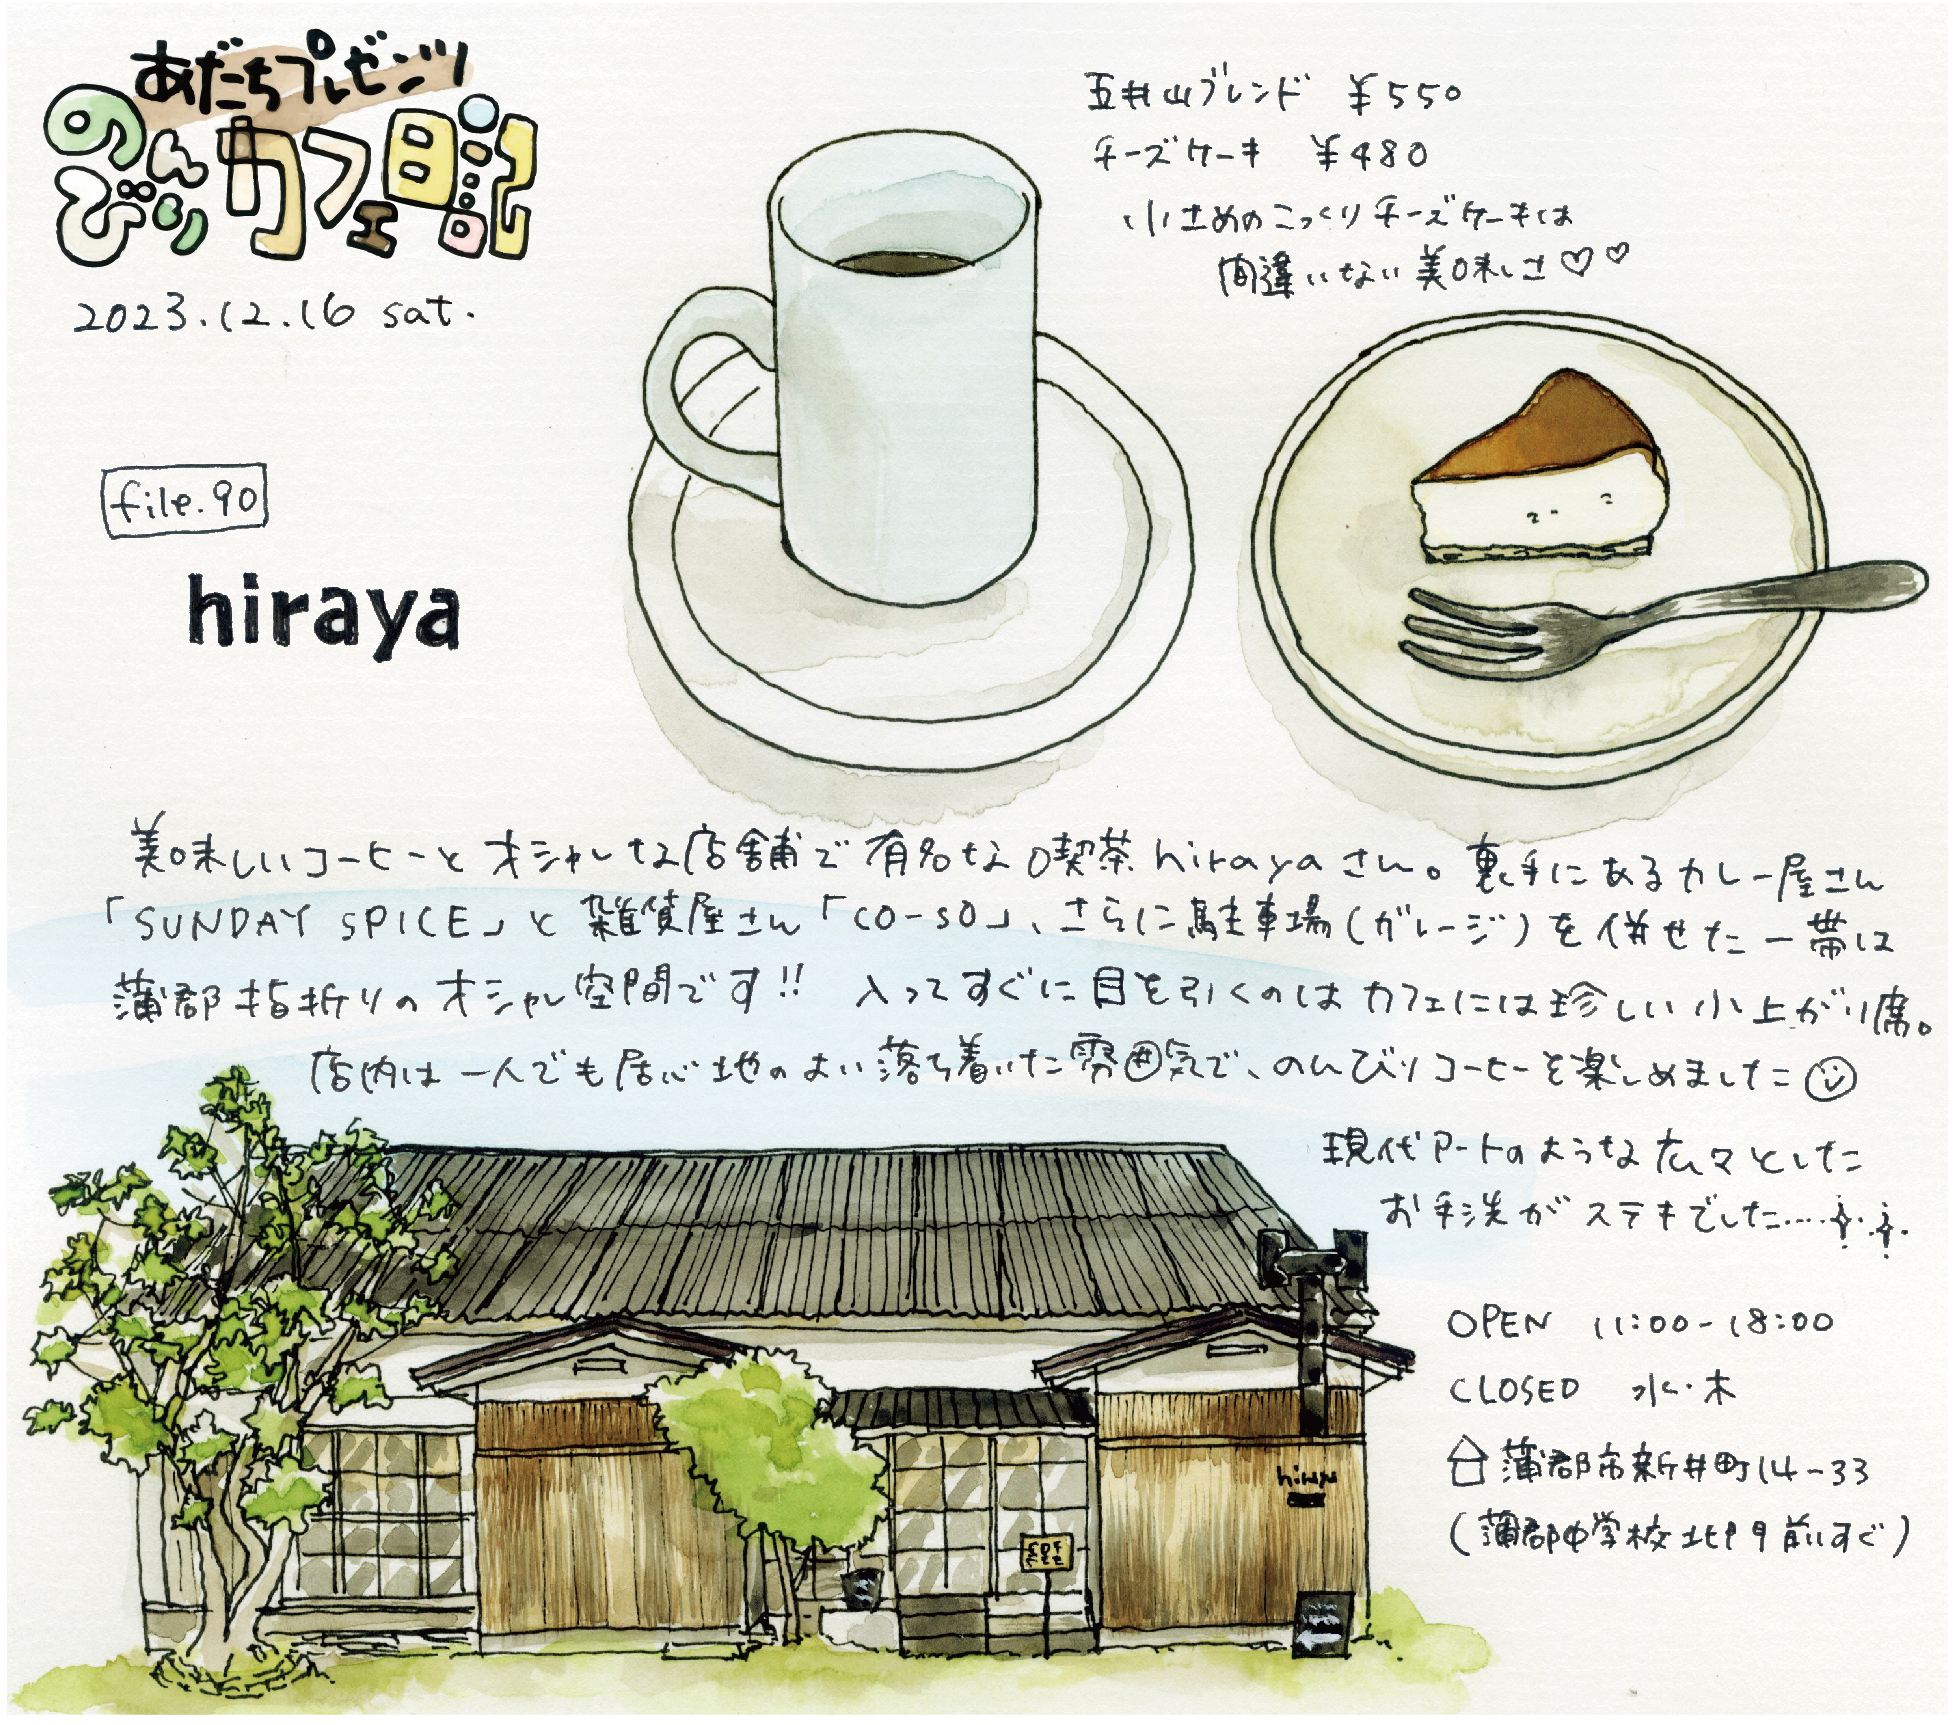 あだちプレゼンツ
のんびりカフェ日記
2023.12.16 sat.
五井山ブレンド ¥550
チーズケーキ ¥480
小さめのこっくりチーズケーキは
間違いない美味しさ♡♡
file.90
hiraya
美味しいコーヒーとオシャレな店舗で有名な喫茶hirayaさん。裏手にあるカレー屋さん
「SUNDAY SPICE」と雑貨屋さん「CO-SO」、さらに駐車場(ガレージ)を併せた一帯は
蒲郡指折りのオシャレ空間です!! 入ってすぐに目を引くのはカフェには珍しい小上がり席。
店内は一人でも居心地のよい落ち着いた雰囲気で、のんびりコーヒーを楽しめました
現代アートのような広々とした
お手洗がステキでした....
OPEN 11:00-18:00
CLOSED 水・木
蒲郡市新井町14-33
(蒲郡中学校北門前すぐ)
hiraya